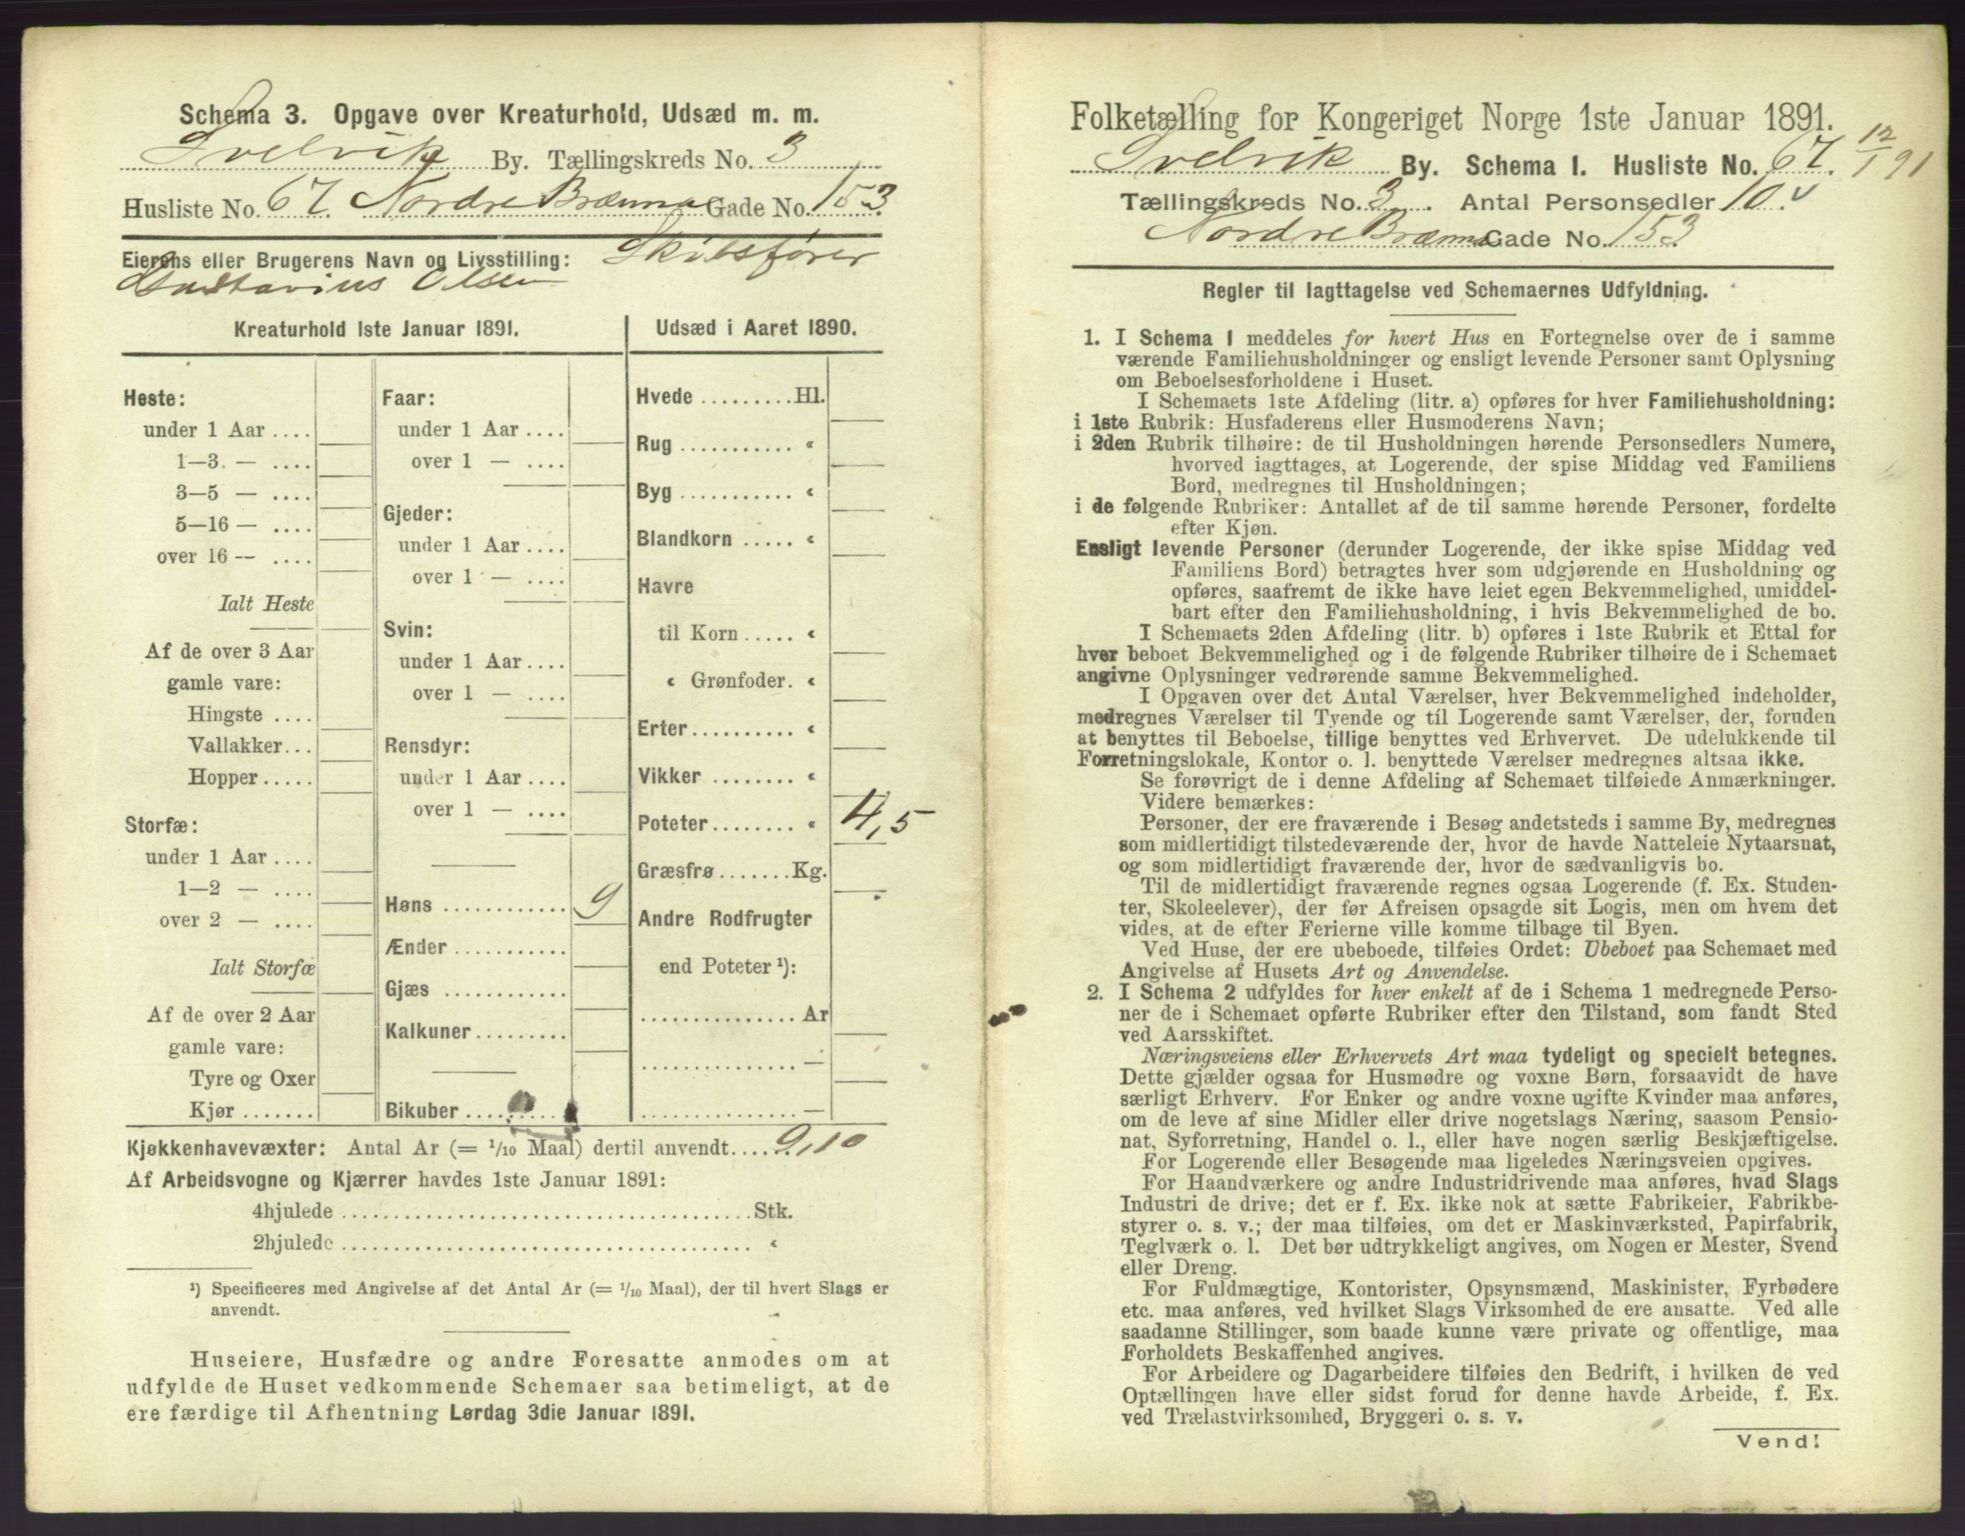 Schema 3. Opgave over Kreaturhold, Udsæd m. m.
Svelvik By. Tællingskreds No. 3
Husliste No. 67. Nordre Brænna Gade No. 153
Eierens eller Brugerens Navn og Livsstilling: Skibsfører
Gustavius Olsen
Kreaturhold 1ste Januar 1891.
Heste:
under 1 Aar ....
1—3. — ....
3—5 — ....
5—16 — ....
over 16 -- ....
Ialt Heste
Af de over 3 Aar
gamle vare:
Hingste ....
Vallakker...
Hopper.....
Storfæ:
under 1 Aar ....
1—2 — ....
over 2 — ....
Ialt Storfæ
Af de over 2 Aar
gamle vare:
Tyre og Oxer
Kjør .......
Faar:
under 1 Aar ....
over 1 — ....
Gjeder:
under 1 Aar ....
over 1 — ....
Svin:
under 1 Aar ....
over 1 — ....
Rensdyr:
under 1 Aar ....
over 1 — ....
Høns ............ 9
Ænder ...........
Gjæs ............
Kalkuner.........
Bikuber ..........
Udsæd i Aaret 1890.
Hvede .........Hl.
Rug ........... «
Byg ........... «
Blandkorn ..... «
Havre
til Korn ..... «
« Grønfoder. «
Erter.......... «
Vikker ........ «
Poteter........ « 4,5
Græsfrø.......Kg.
Andre Rodfrugter
end Poteter ¹):
...............Ar
............... —
............... —
Kjøkkenhavevæxter: Antal Ar (= 1/10 Maal) dertil anvendt.... 9,10
Af Arbeidsvogne og Kjærrer havdes 1ste Januar 1891:
4hjulede ......................................Stk.
2hjulede ...................................... «
¹) Specificeres med Angivelse af det Antal Ar (= 1/10 Maal), der til hvert Slags er
anvendt.
Huseiere, Husfædre og andre Foresatte anmodes om at
udfylde de Huset vedkommende Schemaer saa betimeligt, at de
ere færdige til Afhentning Lørdag 3die Januar 1891.
Folketælling for Kongeriget Norge 1ste Januar 1891.
Svelvik By. Schema I. Husliste No. 67. 12/1 91
Tællingskreds No. 3. Antal Personsedler 10. v
Nordre Brænna Gade No. 153
Regler til Iagttagelse ved Schemaernes Udfyldning.
1. I Schema 1 meddeles for hvert Hus en Fortegnelse over de i samme
værende Familiehusholdninger og ensligt levende Personer samt Oplysning
om Beboelsesforholdene i Huset.
I Schemaets 1ste Afdeling (litr. a) opføres for hver Familiehusholdning:
i 1ste Rubrik: Husfaderens eller Husmoderens Navn;
i 2den Rubrik tilhøire: de til Husholdningen hørende Personsedlers Numere,
hvorved iagttages, at Logerende, der spise Middag ved Familiens
Bord, medregnes til Husholdningen;
i de følgende Rubriker: Antallet af de til samme hørende Personer, fordelte
efter Kjøn.
Ensligt levende Personer (derunder Logerende, der ikke spise Middag ved
Familiens Bord) betragtes hver som udgjørende en Husholdning og
opføres, saafremt de ikke have leiet egen Bekvemmelighed, umiddel-
bart efter den Familiehusholdning, i hvis Bekvemmelighed de bo.
I Schemaets 2den Afdeling (litr. b) opføres i 1ste Rubrik et Ettal for
hver beboet Bekvemmelighed og i de følgende Rubriker tilhøire de i Schemaet
angivne Oplysninger vedrørende samme Bekvemmelighed.
I Opgaven over det Antal Værelser, hver Bekvemmelighed indeholder,
medregnes Værelser til Tyende og til Logerende samt Værelser, der, foruden
at benyttes til Beboelse, tillige benyttes ved Erhvervet. De udelukkende til
Forretningslokale, Kontor o. l. benyttede Værelser medregnes altsaa ikke.
Se forøvrigt de i denne Afdeling af Schemaet tilføiede Anmærkninger.
Videre bemærkes:
Personer, der ere fraværende i Besøg andetsteds i samme By, medregnes
som midlertidigt tilstedeværende der, hvor de havde Natteleie Nytaarsnat,
og som midlertidigt fraværende der, hvor de sædvanligvis bo.
Til de midlertidigt fraværende regnes ogsaa Logerende (f. Ex. Studen-
ter, Skoleelever), der før Afreisen opsagde sit Logis, men om hvem det
vides, at de efter Ferierne ville komme tilbage til Byen.
Ved Huse, der ere ubeboede, tilføies Ordet: Ubeboet paa Schemaet med
Angivelse af Husets Art og Anvendelse.
2. I Schema 2 udfyldes for hver enkelt af de i Schema 1 medregnede Perso-
ner de i Schemaet opførte Rubriker efter den Tilstand, som fandt Sted
ved Aarsskiftet.
Næringsveiens eller Erhvervets Art maa tydeligt og specielt betegnes.
Dette gjælder ogsaa for Husmødre og voxne Børn, forsaavidt de have
særligt Erhverv. For Enker og andre voxne ugifte Kvinder maa anføres,
om de leve af sine Midler eller drive nogetslags Næring, saasom Pensio-
nat, Syforretning, Handel o. l., eller have nogen særlig Beskjæftigelse.
For Logerende eller Besøgende maa ligeledes Næringsveien opgives.
For Haandværkere og andre Industridrivende maa anføres, hvad Slags
Industri de drive; det er f. Ex. ikke nok at sætte Fabrikeier, Fabrikbe-
styrer o. s. v.; der maa tilføies, om det er Maskinværksted, Papirfabrik,
Teglværk o. l. Det bør udtrykkeligt angives, om Nogen er Mester, Svend
eller Dreng.
For Fuldmægtige, Kontorister, Opsynsmænd, Maskinister, Fyrbødere
etc. maa anføres, ved hvilket Slags Virksomhed de ere ansatte. Ved alle
saadanne Stillinger, som baade kunne være private og offentlige, maa
Forholdets Beskaffenhed angives.
For Arbeidere og Dagarbeidere tilføies den Bedrift, i hvilken de ved
Optællingen have eller sidst forud for denne havde Arbeide, f. Ex.
ved Trælastvirksomhed, Bryggeri o. s. v.
Vend!